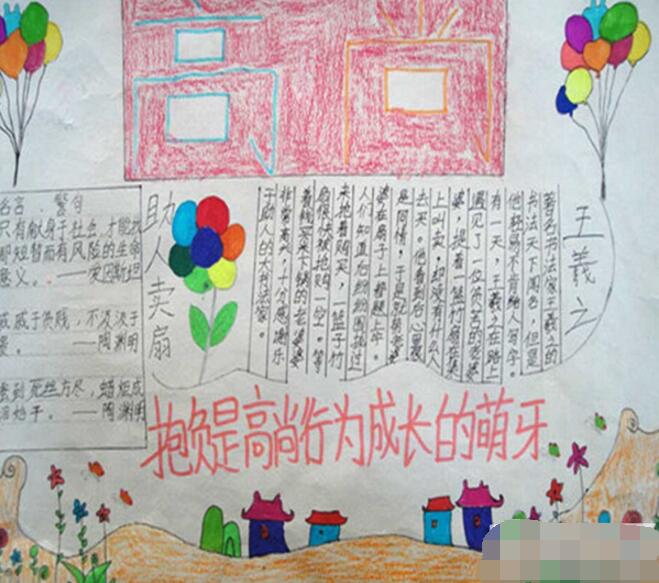 高尚
名言 警句
只有献身于社会,才能找
那短暂而有风险的生命
意义。——爱因斯坦
戚于贫贱,不汲汲于
——陶渊明
蚕到死丝方尽,蜡炬成
泪始干。——陶渊明
助人卖扇
王羲之
著名书法家王羲之的
书法天下闻名,但是
他轻易不肯给人写字。
有一天,王羲之在路上
遇见了一位贫苦的老婆
婆,提着一篮竹扇在集
上叫卖,却没有什么人
去买。他看到后心里很
是同情,于是就帮老婆
婆在扇子上都题上字。
人们知道后纷纷围拢过
来抢着购买,一篮子竹
扇很快被抢购一空。等
着钱买米下锅的老婆婆
非常高兴,十分感谢乐
于助人的大书法家。
抱负是高尚行为成长的萌牙